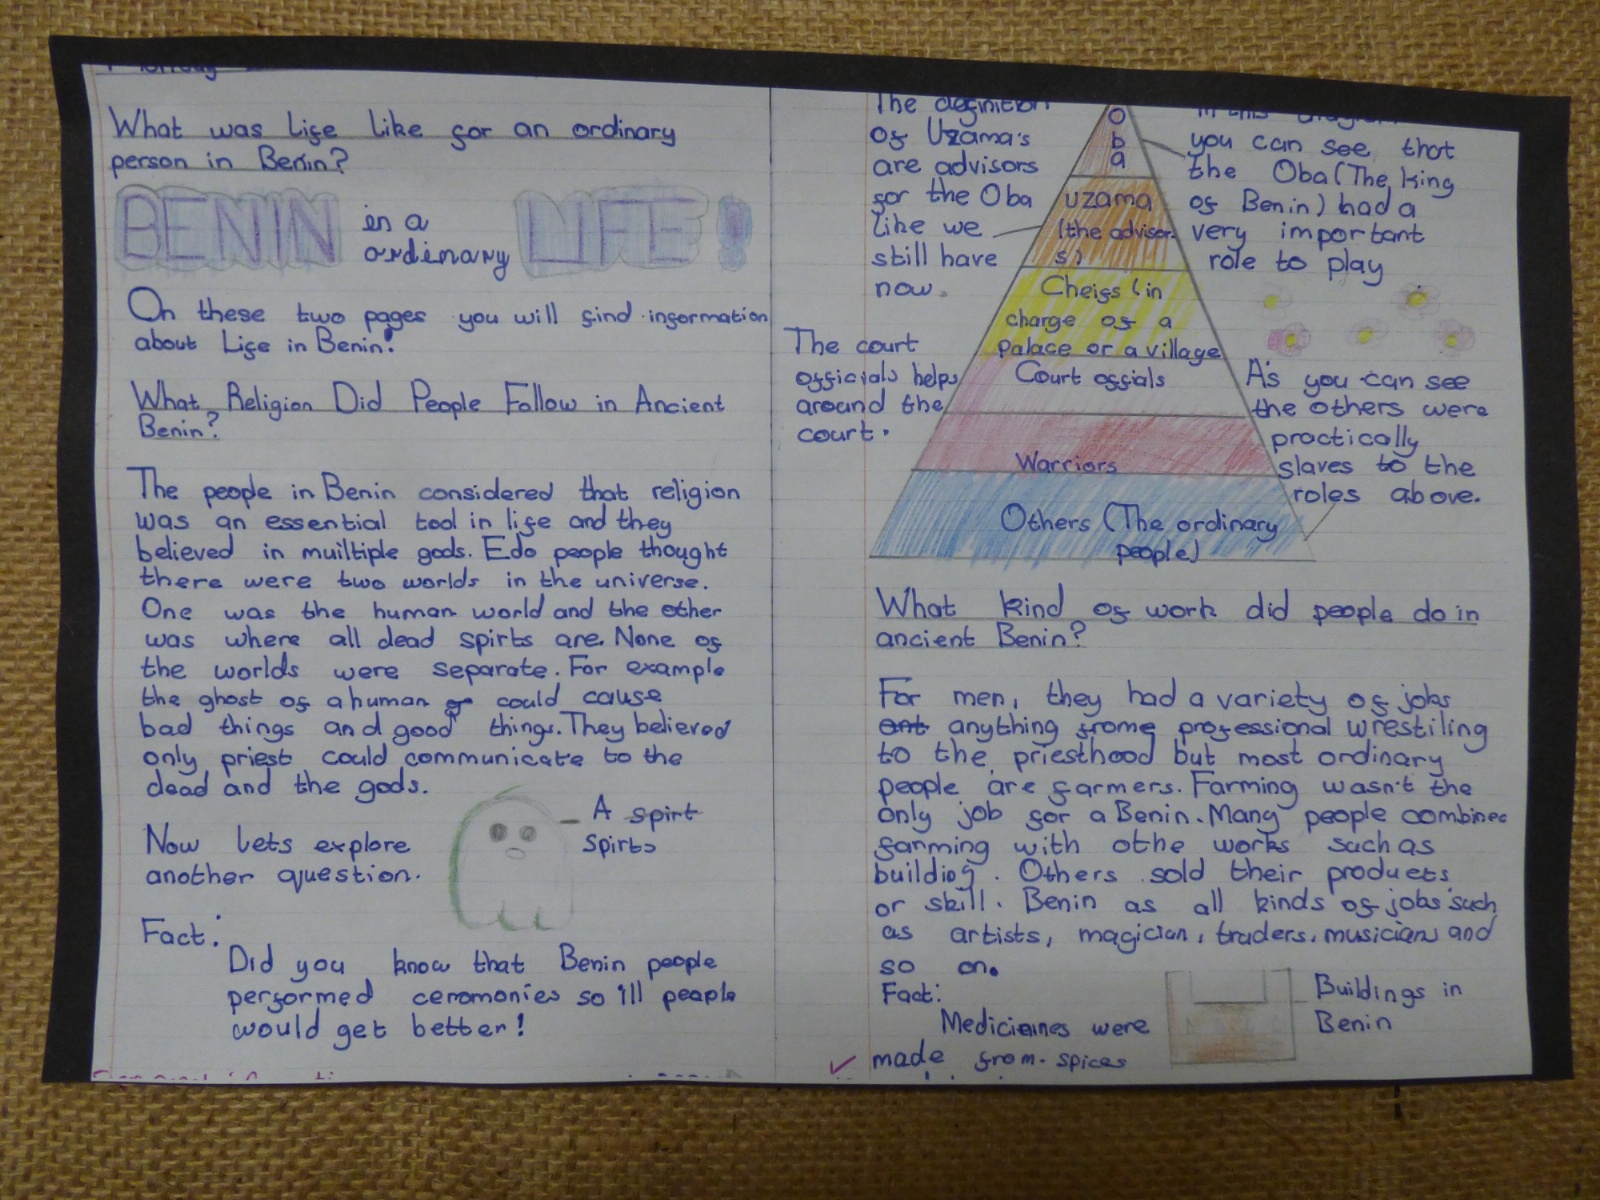 What was life like for an ordinary
person in Benin?
BENIN in a
ordinary LIFE!
On these two pages you will find information
about Life in Benin!
What Religion Did People Follow in Ancient
Benin?
The people in Benin considered that religion
was an essential tool in life and they
believed in muiltiple gods. Edo people thought
there were two worlds in the universe.
One was the human world and the other
was where all dead spirts are. None of
the worlds were separate. For example
the ghost of a human could cause
bad things and good things. They believed
only priest could communicate to the
dead and the gods.
Now lets explore
another question.
A spirt
spirts
Fact:
Did you know that Benin people
performed ceromonies so ill people
would get better!
The definition
of Uzama's
are advisors
for the Oba
like we
still have
now.
The court
officials helps
around the
court.
Oba
uzama
(the advisor
s)
Cheifs (in
charge of a
palace or a village
Court offials
Warriors
Others (The ordinary
people)
In this diagram
you can see that
the Oba (The king
of Benin) had a
very important
role to play
As you can see
the others were
practically
slaves to the
roles above.
What kind of work did people do in
ancient Benin?
For men, they had a variety of jobs
ant anything frome professional wrestiling
to the priesthood but most ordinary
people are farmers. Farming wasn't the
only job for a Benin. Many people combined
farming with othe works such as
buildiog. Others sold their products
or skill. Benin as all kinds of jobs such
as artists, magician, traders, musician and
so on.
Fact:
Mediciennes were
made from spices
Buildings in
Benin